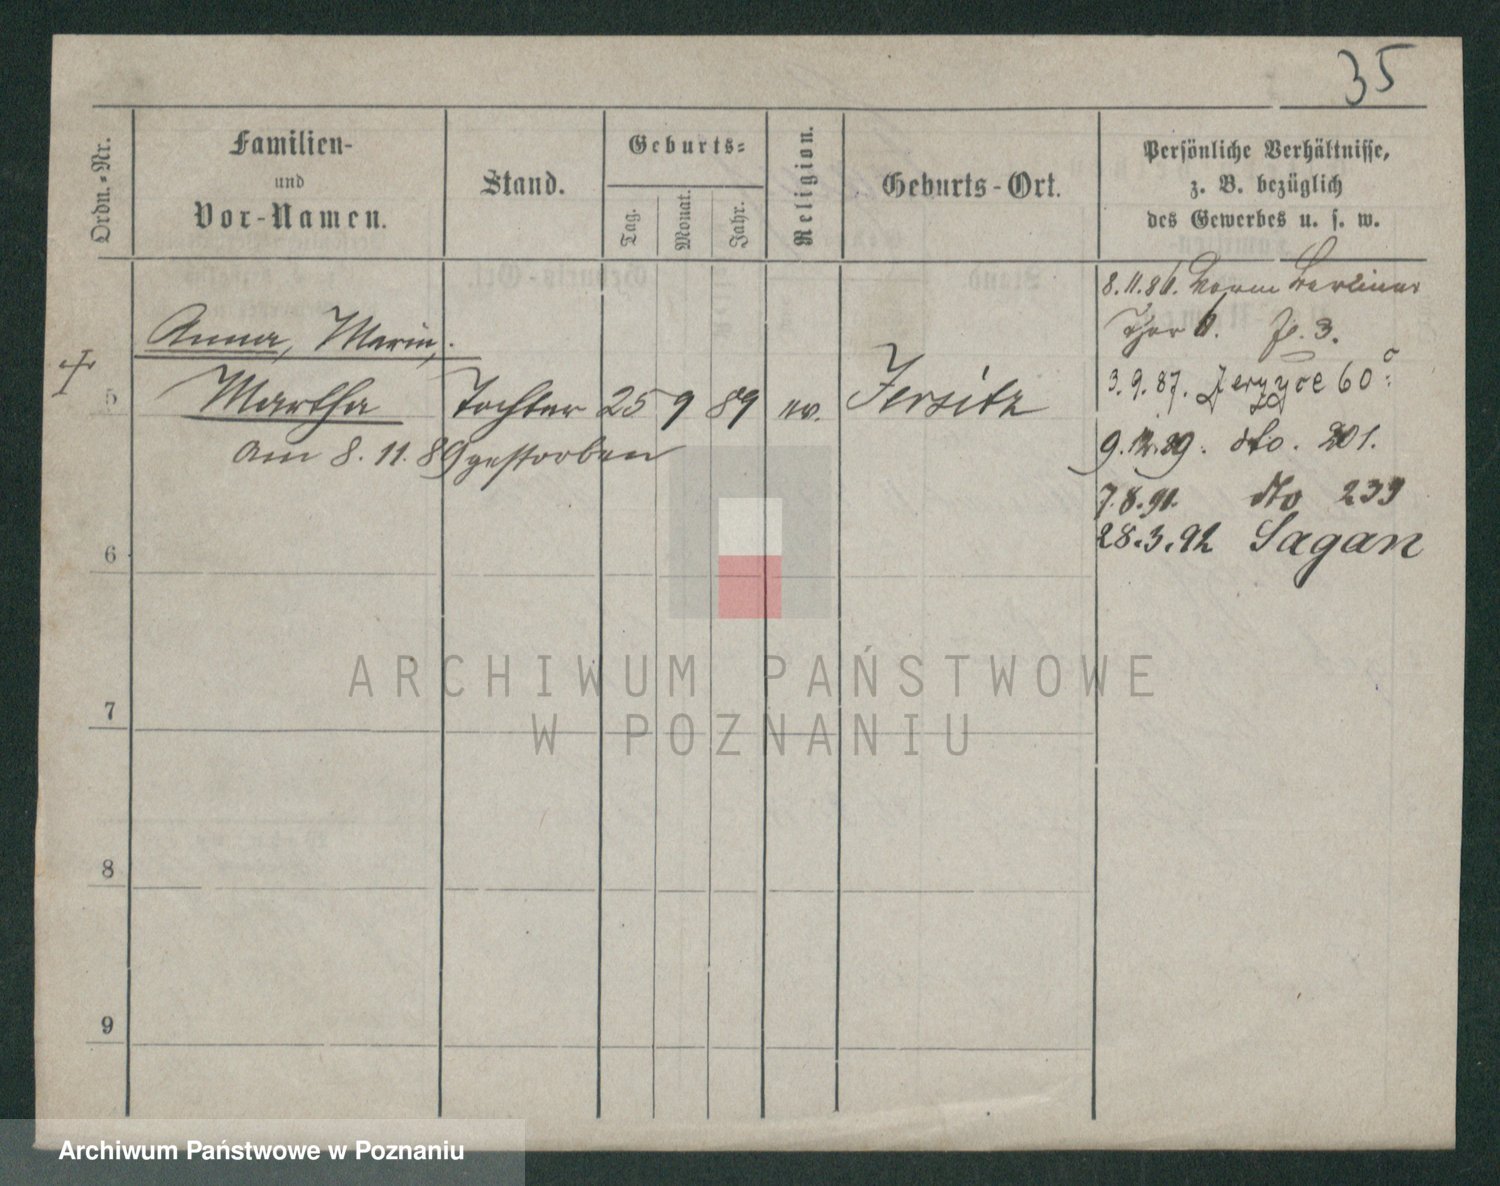 35
Ordn.-Nr.
Familien-
und
Vor-Namen.
Stand.
Geburts-
Tag.
Monat.
Jahr.
Religion.
Geburts-Ort.
Persönliche Verhältnisse,
z. B. bezüglich
des Gewerbes u. s. w.
8.11.86. Vorm Berliner
Thor 3.
3.9.87. Jerzyce 60
9.12.89. dto. 201.
7.8.91. dto 239
28.3.92 Sagan
Anna, Marie,
5 Martha Tochter 25 9 89 ev. Jersitz
am 8.11.89 gestorben
6
7
8
9
ARCHIWUM PAŃSTWOWE
W POZNANIU
Archiwum Państwowe w Poznaniu